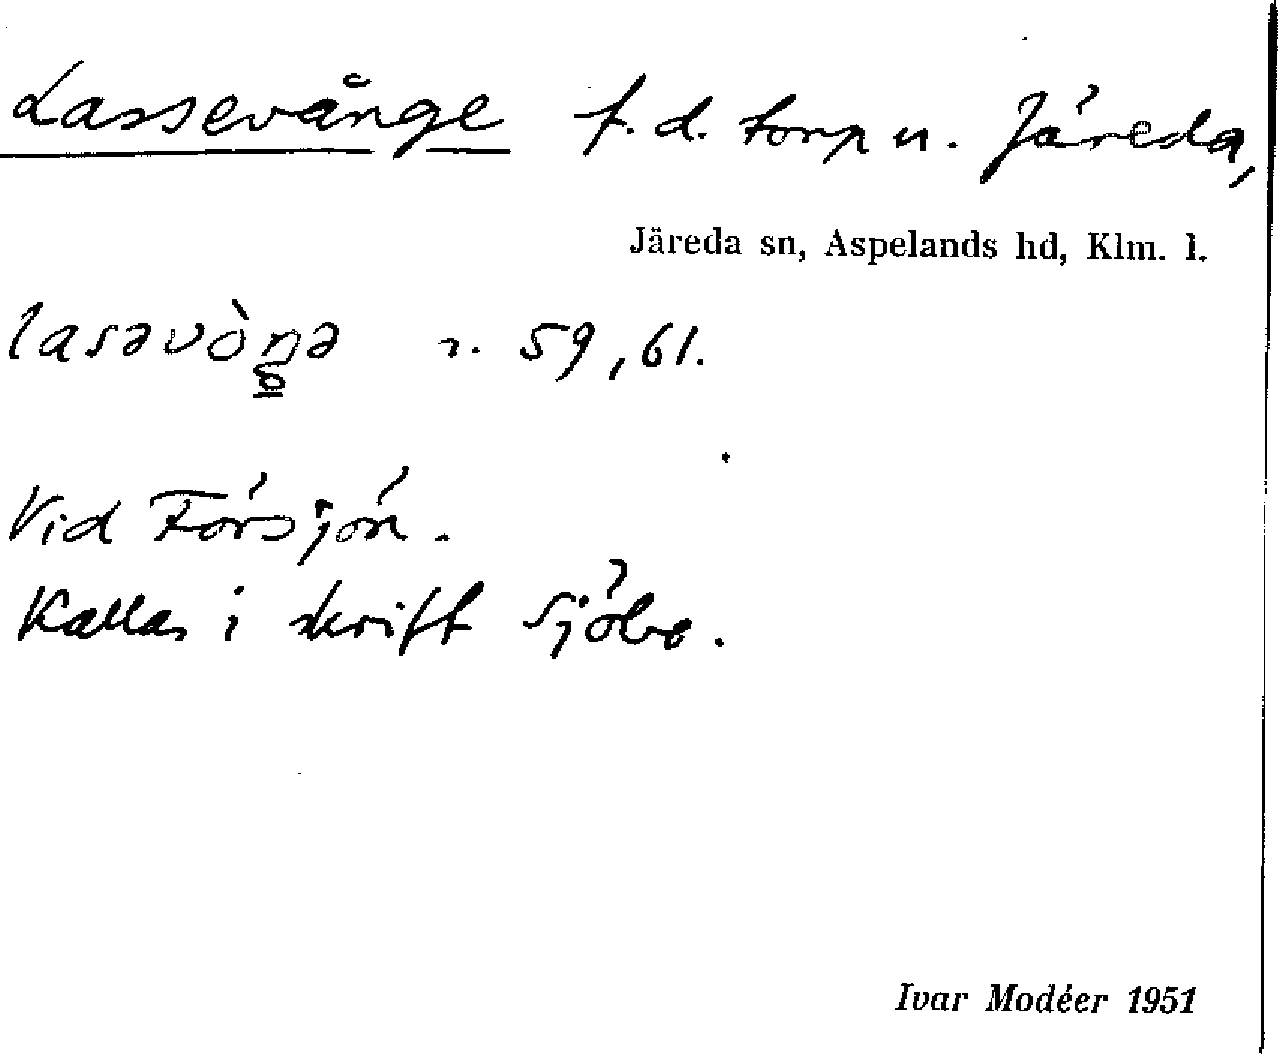 Lassevånge f.d. torp u. Järeda,
Järeda sn, Aspelands hd, Klm. l.
lasəvòŋə r. 59, 61.
Vid Försjön.
Kallas i skrift Sjöbo.
Ivar Modéer 1951